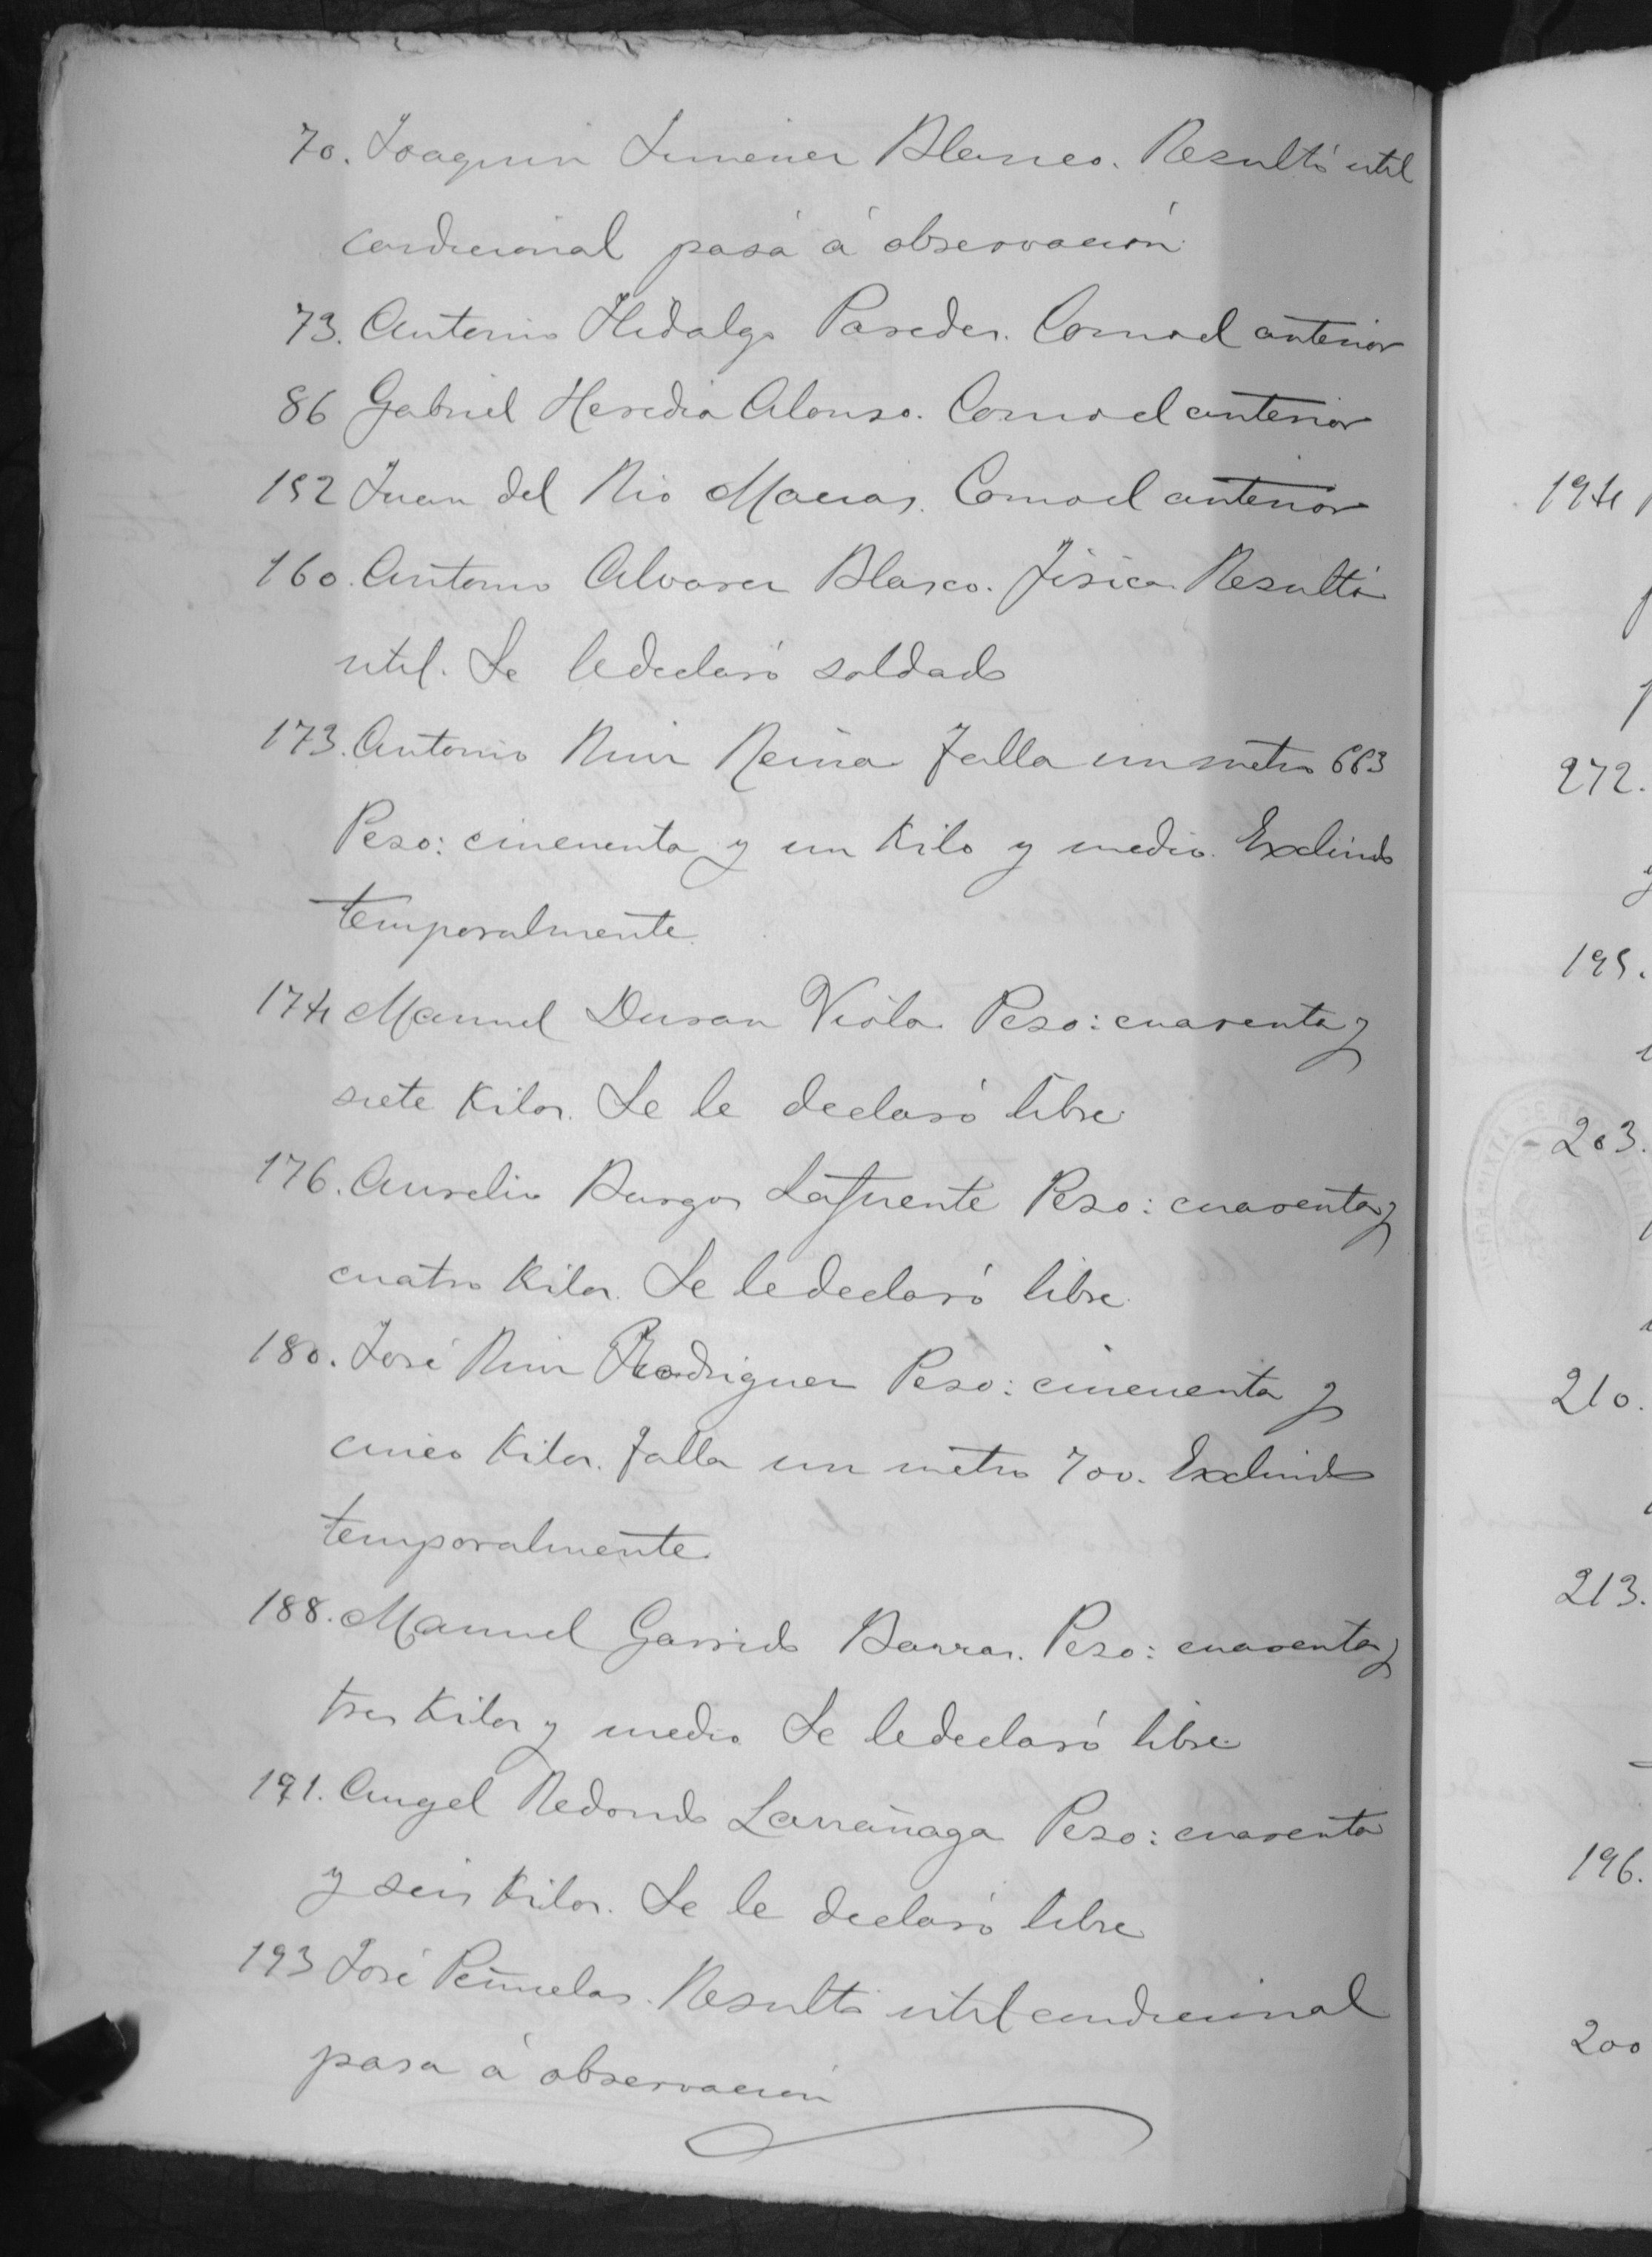 70. Joaquin Jimenez Blanco. Resultó util
condicional pasa á observación.
73. Antonio Hidalgo Paredes. Como el anterior
86 Gabriel Heredia Alonso. Como el anterior
152 Juan del Rio Macias. Como el anterior
160. Antonio Alvarez Blasco. Física. Resultó
util. Se le declaró soldado
173. Antonio Ruiz Reina. Talla un metro 663
Peso: cincuenta y un Kilo y medio. Excluido
temporalmente.
174 Manuel Duran Viola. Peso: cuarenta y
siete Kilos. Se le declaró libre.
176. Aurelio Burgos Lafuente Peso: cuarenta y
cuatro Kilos. Se le declaró libre.
180. José Ruiz Rodriguez Peso: cincuenta y
cinco Kilos. Talla un metro 700. Excluido
temporalmente.
188. Manuel Garrido Barras. Peso: cuarenta y
tres Kilos y medio. Se le declaró libre.
191. Angel Redondo Larrañaga Peso: cuarenta
y seis Kilos. Se le declaró libre
193 José Peñuelas. Resultó util condicional
pasa á observación
194
272.
195.
203.
210.
213.
196.
200